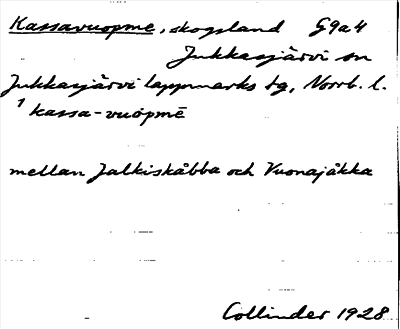 Kassavuopme, skogsland G9a4
Jukkasjärvi sn
Jukkasjärvi lappmarks tg, Norrb. l.
¹kassa-vuopmē
mellan Jalkiskåbba och Vuonajåkka
Collinder 1928